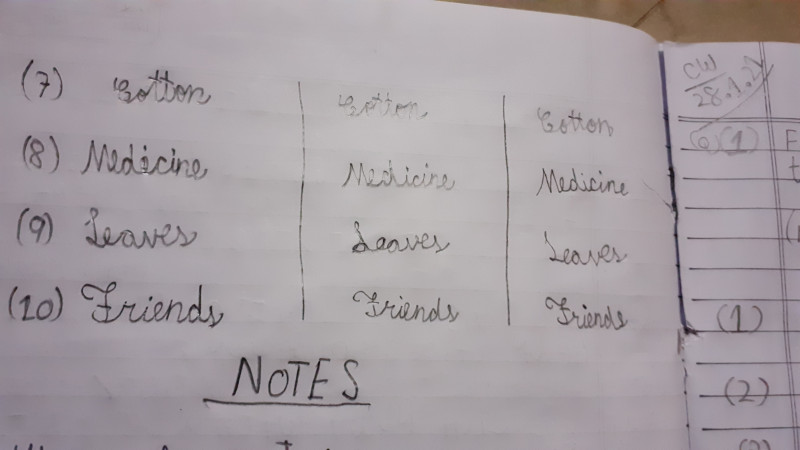 (7) Cotton Cotton Cotton
(8) Medicine Medicine Medicine
(9) Leaves Leaves Leaves
(10) Friends Friends Friends
NOTES
CW
28.1.21
(1)
(1)
(2)